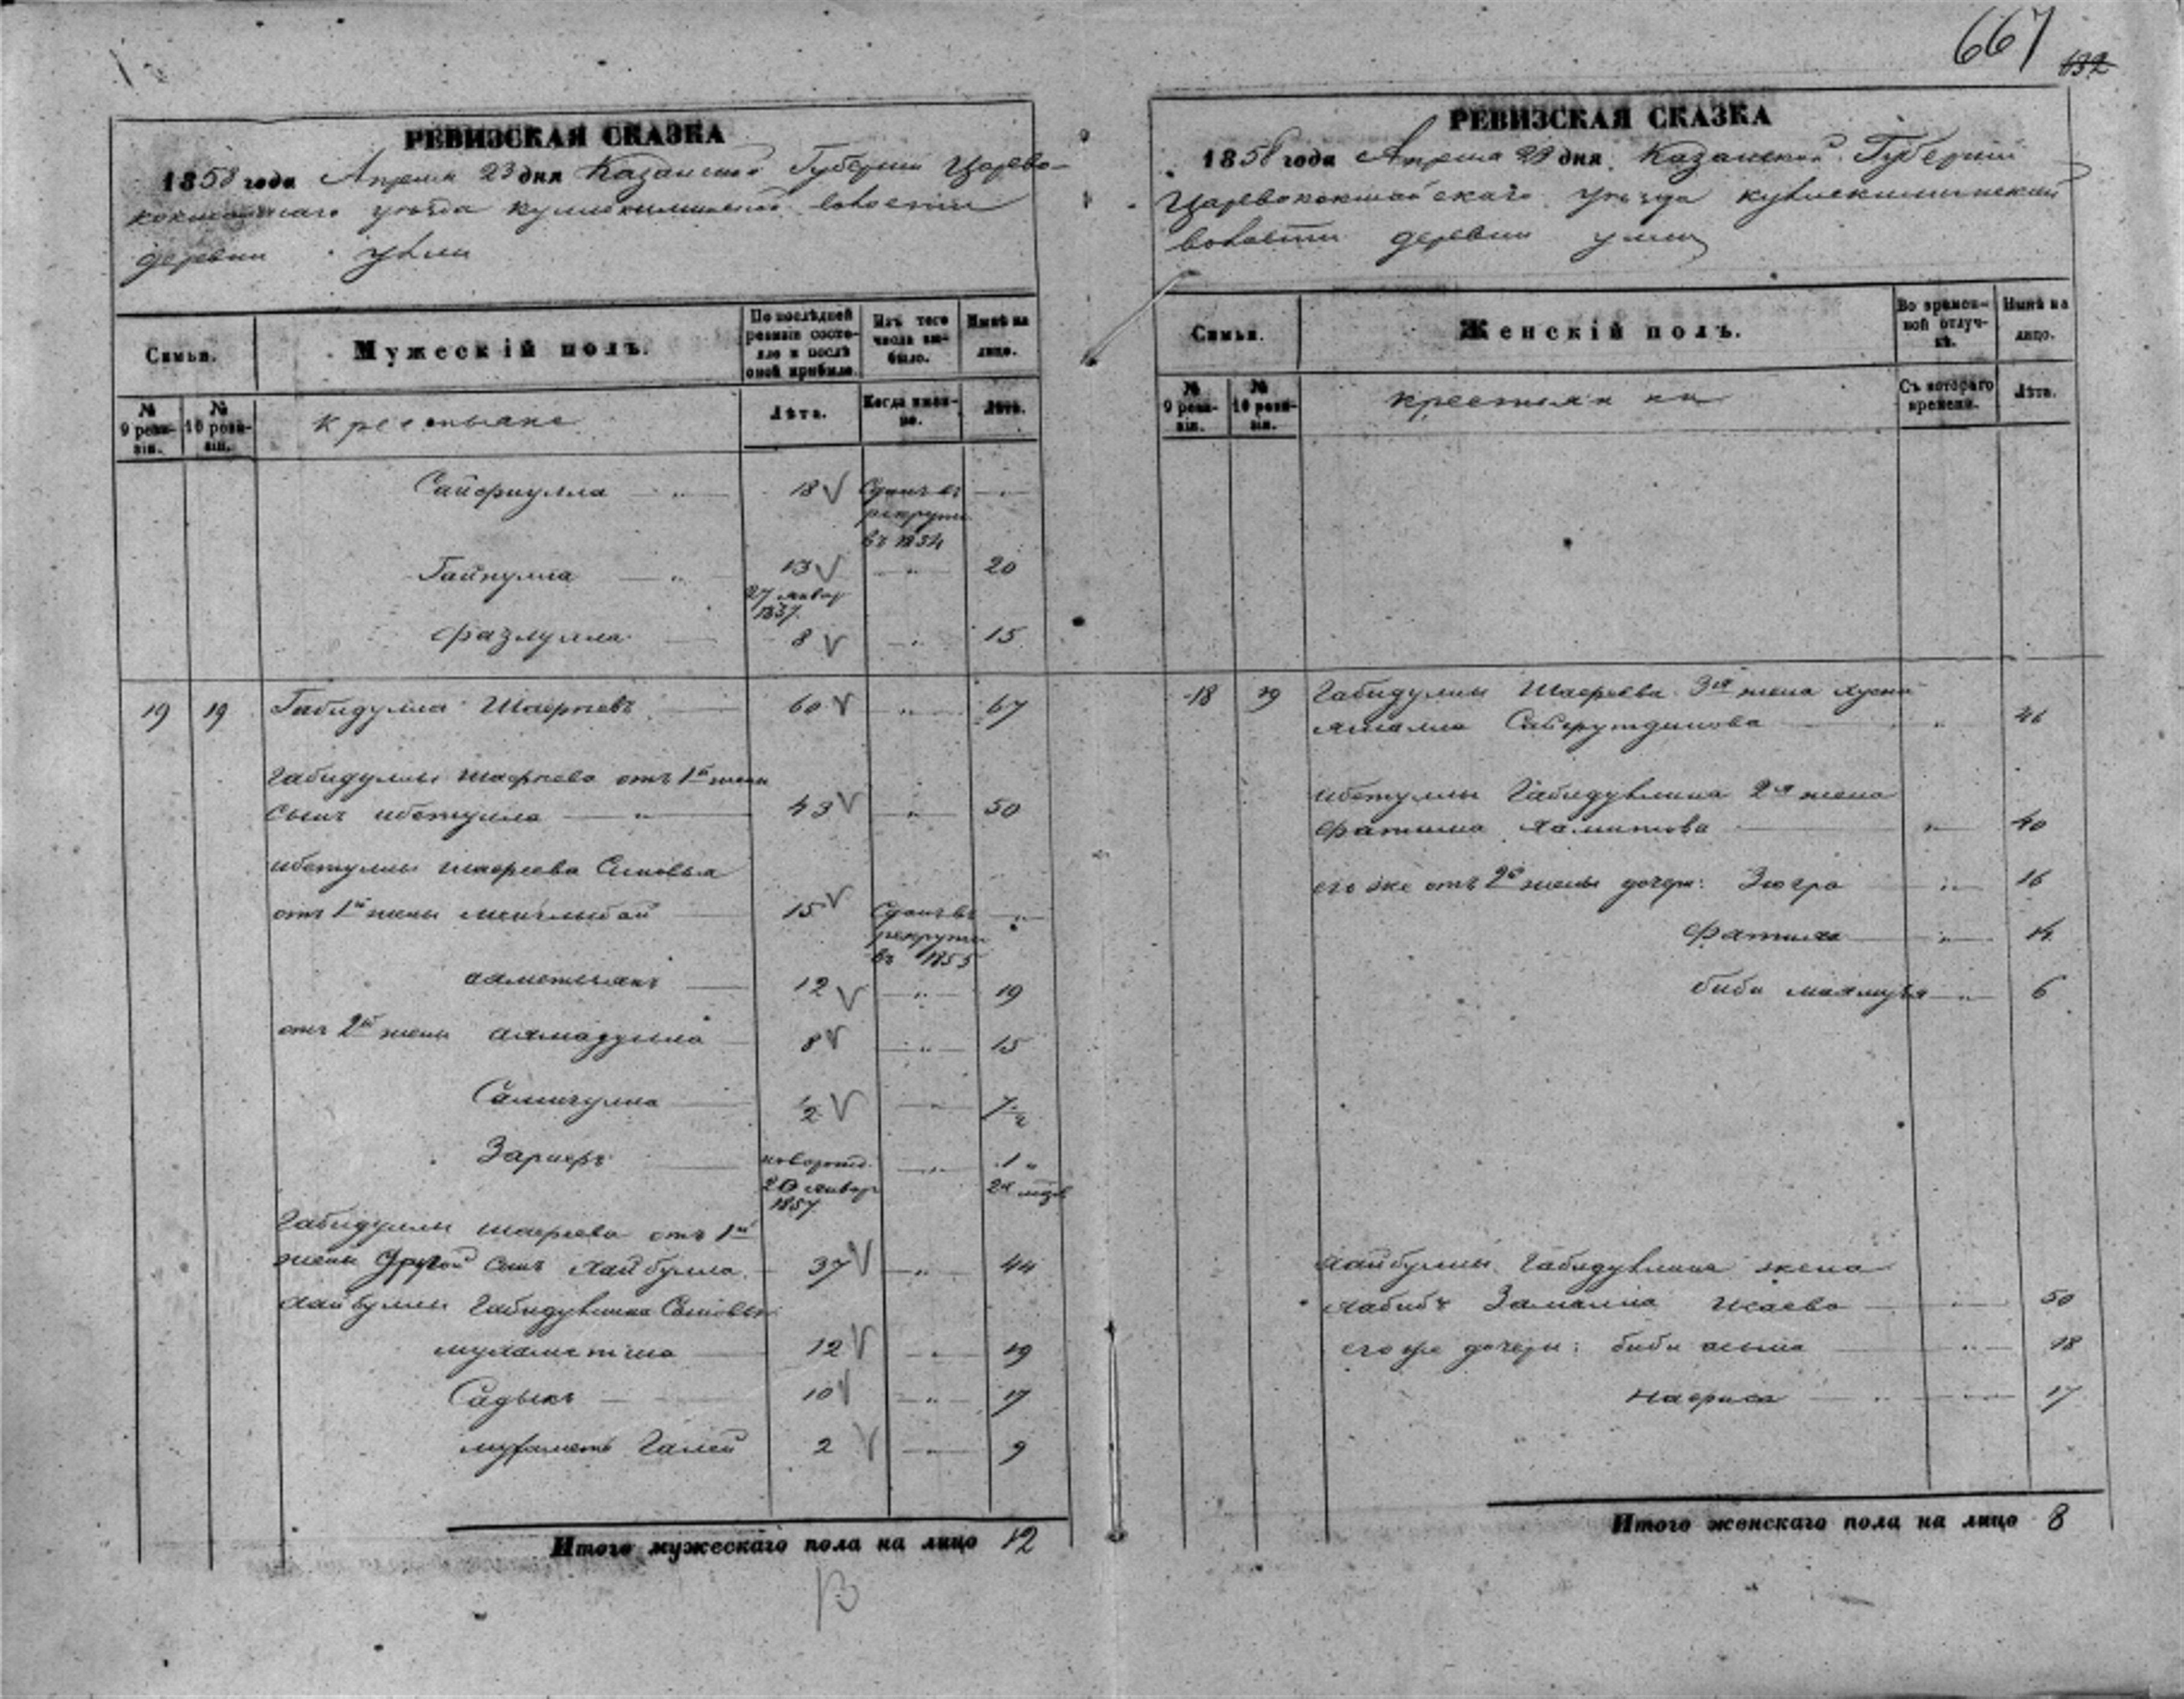 667
132
РЕВИЗСКАЯ СКАЗКА
1858 года Апреля 23 дня Казанской Губернии Царево-
кокшайскаго уезда волости
деревни
Семьи.
Мужескій полъ.
По послѣдней ревизіи состояло и послѣ оной прибыло.
Изъ того числа выбыло.
Нынѣ на лицо.
№ 9 ревизіи.
№ 10 ревизіи.
крестьяне
Лѣта.
Когда именно.
Лѣта.
Сайфиулла — " — 18 V Сданъ въ — " —
рекруты
въ 1854
Гайнулла — " — 13 V — " — 20
27 январ
1837.
Фазлулла — 8 V — " — 15
19 19 Габидулла Шафеевъ — 60 V — " — 67
Габидуллы Шафеева отъ 1й жены
сынъ ибетулла — " — 43 V — " — 50
ибетуллы Шафеева Сыновья
отъ 1й жены — 15 V Сданъ въ — " —
рекруты
въ 1855
ахметзянъ — 12 V — " — 19
отъ 2й жены ахмадулла — 8 V — " — 15
Самигулла — 1/2 V — " — 7 1/2
Зарифъ — новорожд. — " — 1 "
20 январ
1857
Габидуллы Шафеева отъ 1й
жены другой сынъ хайбулла — 37 V — " — 44
хайбуллы Габидуллина Сыновья:
мухаметша — 12 V — " — 19
Садыкъ — 10 V — " — 17
мухаметъ Галей 2 V — " — 9
Итого мужескаго пола на лицо 12
РЕВИЗСКАЯ СКАЗКА
1858 года Апреля 23 дня Казанской Губернии
Царевококшайскаго уезда
волости деревни
Семьи.
Женскій полъ.
Во временной отлучкѣ.
Нынѣ на лицо.
№ 9 ревизіи.
№ 10 ревизіи.
крестьянки
Съ котораго времени.
Лѣта.
18 19 Габидуллы Шафеева 3я жена
Сайфутдинова — " — 46
ибетуллы Габидуллина 2я жена
Фатима Хамитова — " — 40
его же отъ 2й жены дочери: Зюгра — " — 16
Фатиха — " — 14
биби — " — 6
хайбуллы Габидуллина жена
хабиб Замалиа Исаева — " — 50
его же дочери: биби — " — 18
Нафиса — " — 17
Итого женскаго пола на лицо 8